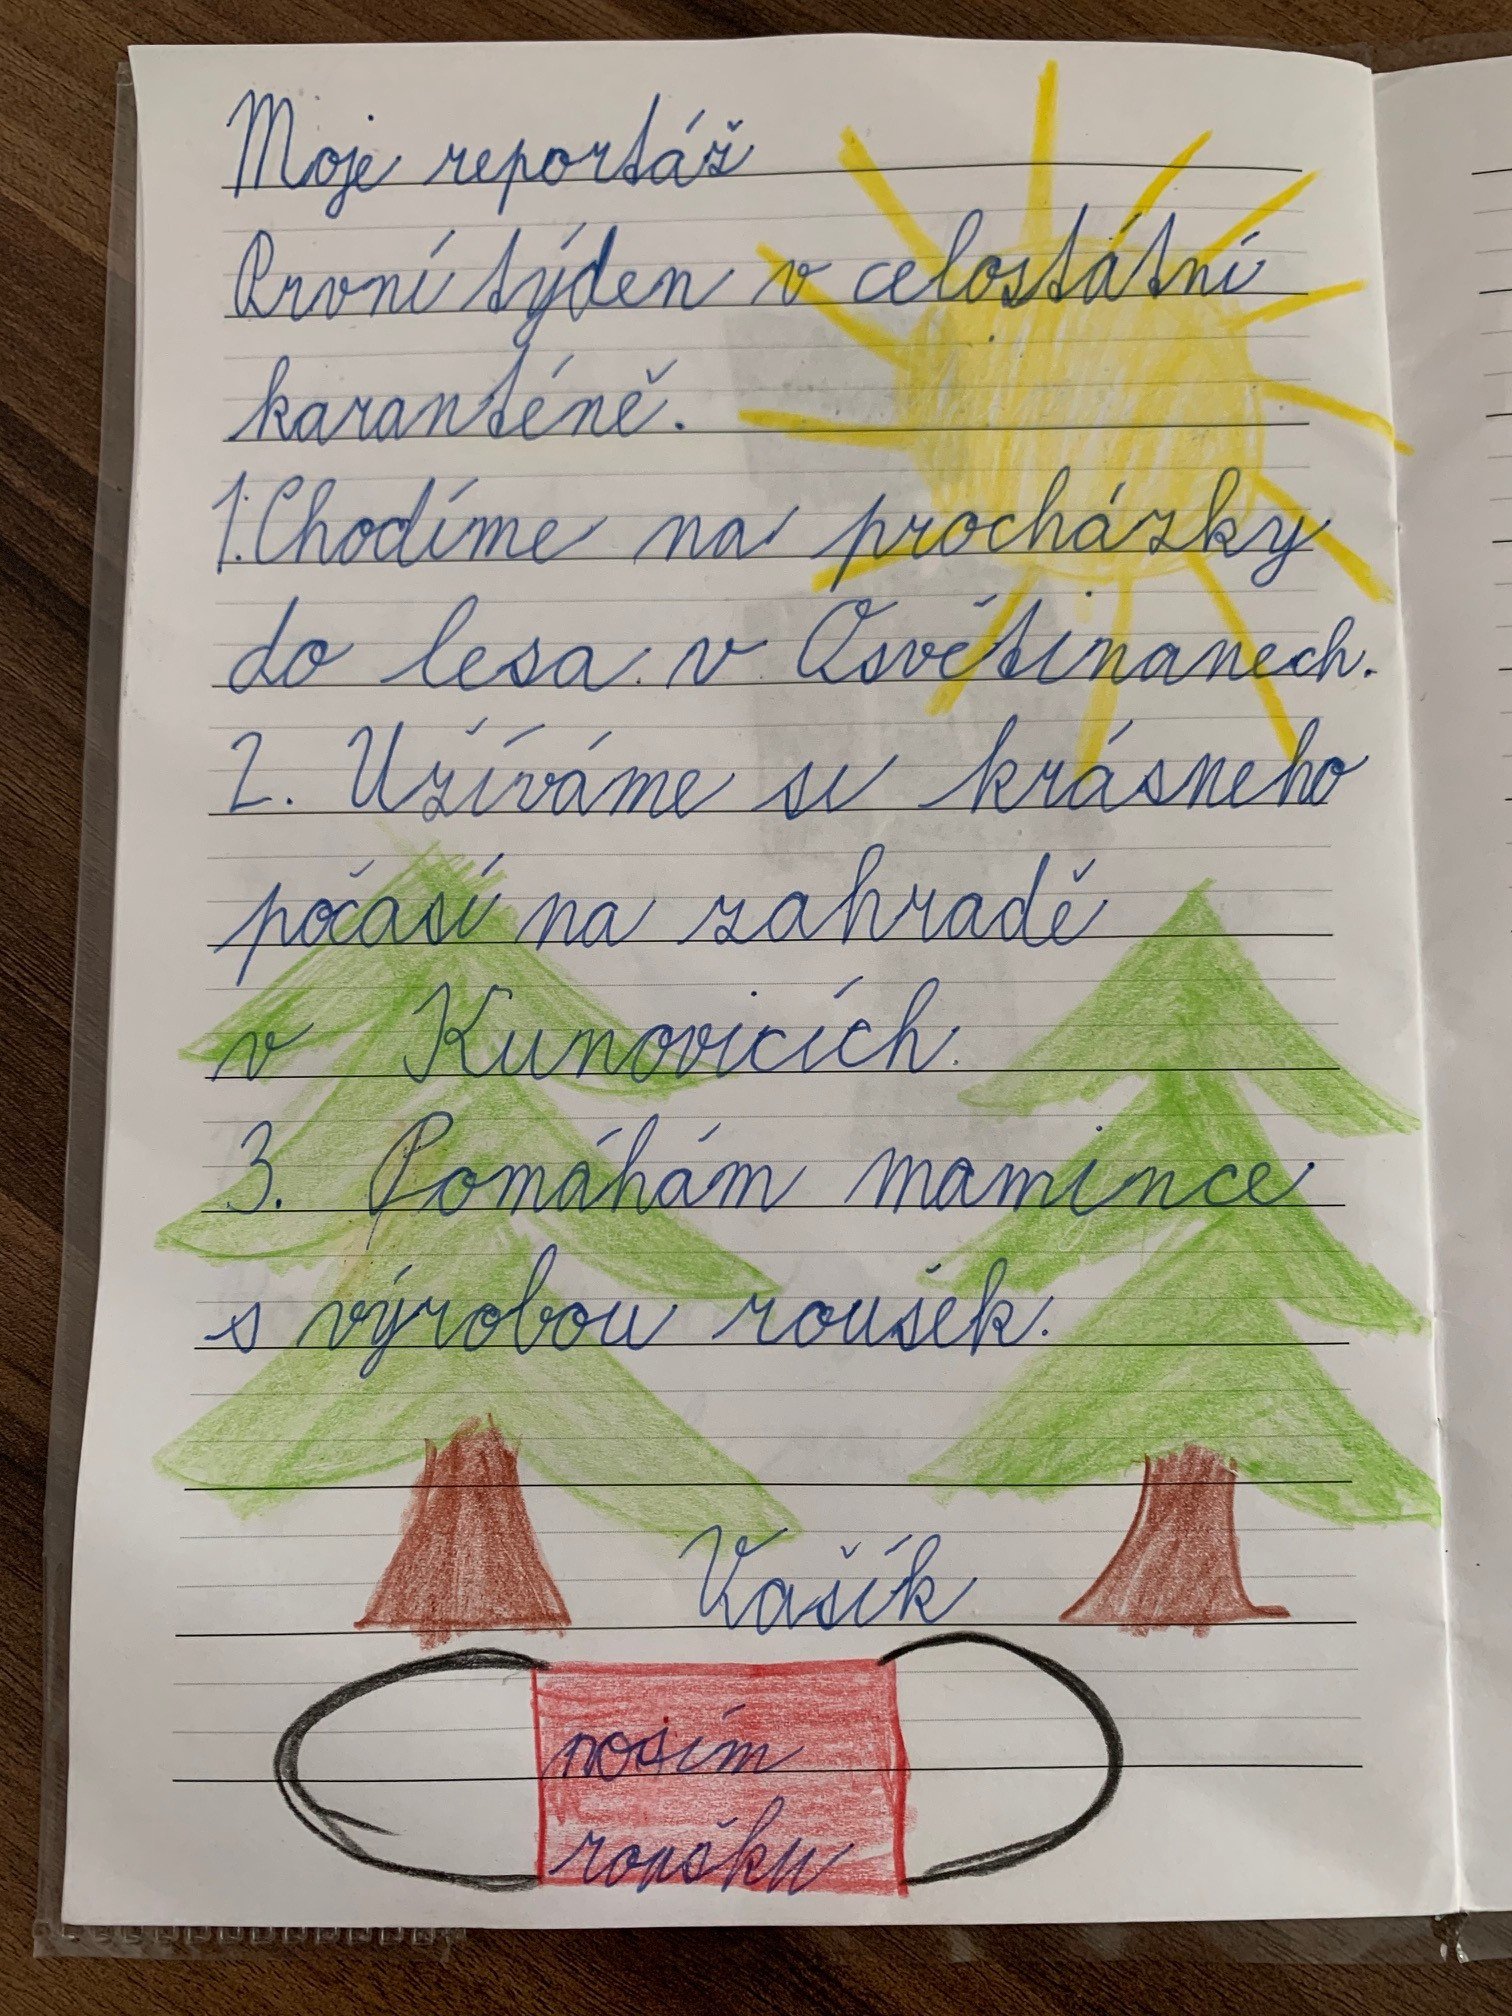 Moje reportáž
První týden v celostátní
karanténě.
1. Chodíme na procházky
do lesa v Osvětimanech.
2. Užíváme si krásneho
počasí na zahradě
v Kunovicích.
3. Pomáhám mamince
s výrobou roušek.
Vašík
nosím
roušku